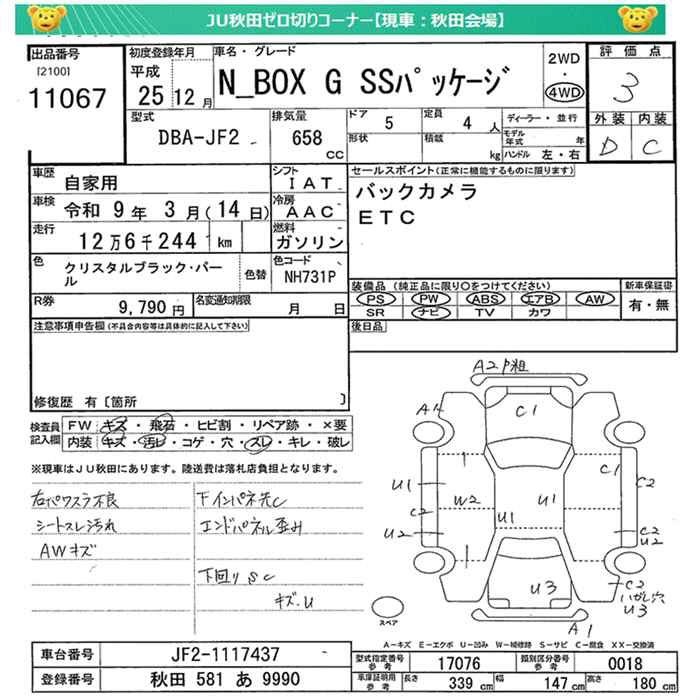 JU秋田ゼロ切りコーナー【現車：秋田会場】
出品番号
[2100]
11067
初度登録年月
平成
25年12月
車名・グレード
N_BOX G SSパッケージ
2WD
・
4WD
評価点
3
外装 内装
D C
型式
DBA-JF2
排気量
658
CC
ドア 5
形状
定員 4 人
積載 kg
ディーラー・並行
モデル年式 年
ハンドル 左・右
車歴 自家用
車検 令和 9年 3月(14日)
走行 12万6千244 km
シフト IAT
冷房 AAC
燃料 ガソリン
セールスポイント(正常に機能するものに限ります)
バックカメラ
ETC
色 クリスタルブラック・パール
色替
色コード NH731P
R券 9,790 円
名変通知期限 月 日
装備品 (純正品に限り○をつけてください)
PS PW ABS エアB AW
SR ナビ TV カワ
新車保証書
有・無
後日品
注意事項申告欄(不具合内容等は具体的に記入して下さい)
修復歴 有[箇所 ]
検査員記入欄
FW キズ・飛石・ヒビ割・リペア跡・×要
内装 キズ・汚レ・コゲ・穴・スレ・キレ・破レ
※現車はJU秋田にあります。陸送費は落札店負担となります。
右パワスラ不良
シートスレ汚れ
AWキズ
下インパネ先C
エンドパネル歪み
下回りSC
キズ.U
A2P粗
A1
C1
U1
C2
U2
W2
U1
U1
C1
C2
C2
U2
U3
C2
U3
A1
スペア
A－キズ E－エクボ U－凹み W－補修跡 S－サビ C－腐食 XX－交換済
車台番号 JF2-1117437
登録番号 秋田 581 あ 9990
型式指定番号 参考 17076
類別区分番号 参考 0018
車庫証明用 参考 長さ 339 cm 幅 147 cm 高さ 180 cm